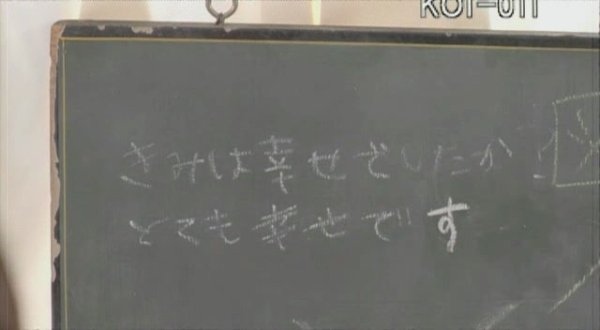 KOI-011
きみは幸せでしたか?
とても幸せです